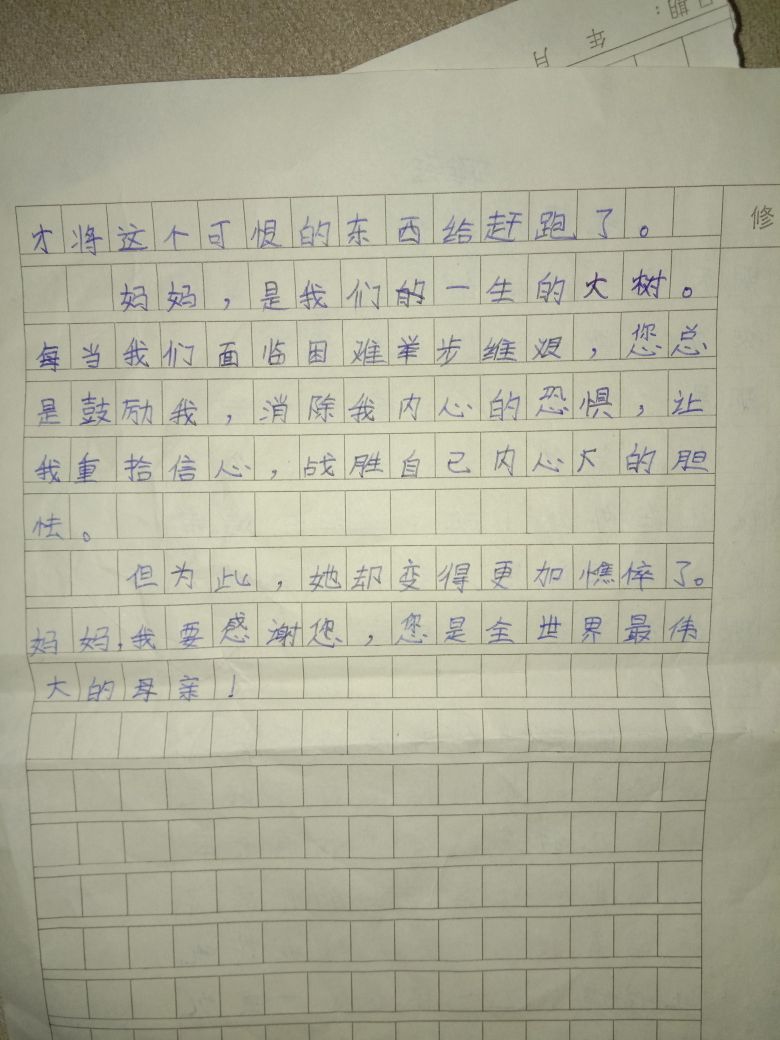 日期：
年 月
修
才将这个可恨的东西给赶跑了。
妈妈，是我们的一生的大树。
每当我们面临困难举步维艰，您总
是鼓励我，消除我内心的恐惧，让
我重拾信心，战胜自己内心大的胆
怯。
但为此，她却变得更加憔悴了。
妈妈，我要感谢您，您是全世界最伟
大的母亲！